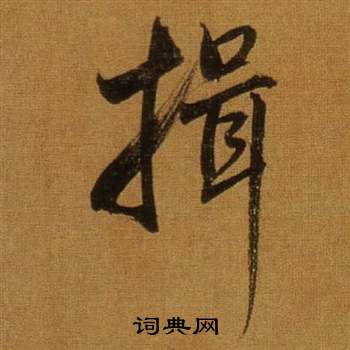 揖
词典网